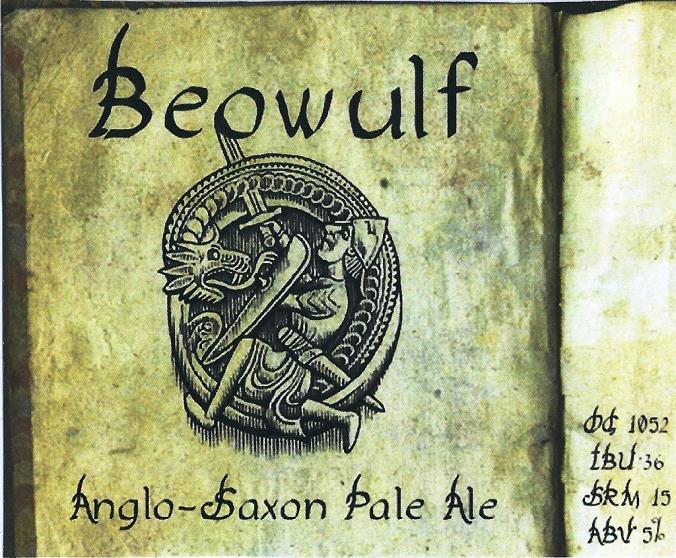 Beowulf
Anglo-Saxon Pale Ale
OG 1052
IBU·36
SRM 15
ABV 5%